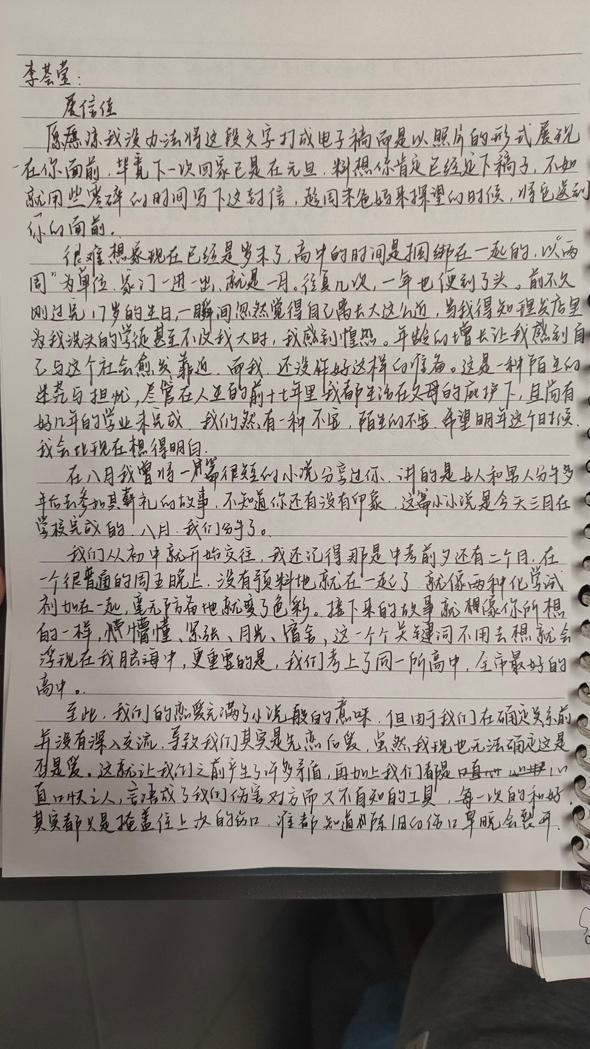 李荟莹：
展信佳
原谅我没办法将这段文字打成电子稿而是以照片的形式展现
在你面前，毕竟下一次回家已是在元旦，料想你肯定已经定下稿子，不如
就用些零碎的时间写下这封信，趁周末爸妈来探望的时候，将它送到
你的面前。
很难想象现在已经是岁末了，高中的时间是捆绑在一起的，以“两
周”为单位，家门一进一出，就是一月。往复几次，一年也便到了头。前不久
刚过完17岁的生日，一瞬间忽然觉得自己离长大这么近，当我得知理发店里
为我洗头的学徒甚至不及我大时，我感到惶恐。年龄的增长让我感到自
己与这个社会愈发靠近，而我，还没作好这样的准备。这是一种陌生的
迷茫与担忧，尽管在人生的前十七年里我都生活在父母的庇护下，且尚有
好几年的学业未完成，我仍然有一种不安，陌生的不安，希望明年这个时候，
我会比现在想得明白。
在八月我曾将一篇很短的小说分享过你，讲的是女人和男人分手多
年后去参加其葬礼的故事，不知道你还有没有印象，这篇小小说是今天三月在
学校完成的，八月，我们分手了。
我们从初中就开始交往，我还记得那是中考前夕还有二个月，在
一个很普通的周五晚上，没有预料地就在一起了，就像两种化学试
剂加在一起，毫无防备地就变了色彩。接下来的故事就想像你所想
的一样，懵懵懂懂、紧张、月光、宿舍，这一个个关键词不用去想就会
浮现在我脑海中，更重要的是，我们考上了同一所高中，全市最好的
高中。
至此，我们的恋爱充满了小说般的意味，但由于我们在确定关系前
并没有深入交流，导致我们其实是先恋后爱，虽然我现也无法确定这是
否是爱。这就让我们之前产生了许多矛盾，再加上我们都是心
直口快之人，言语成了我们伤害对方而又不自知的工具，每一次的和好，
其实都只是掩盖住上次的伤口，谁都知道那陈旧的伤口早晚会裂开，